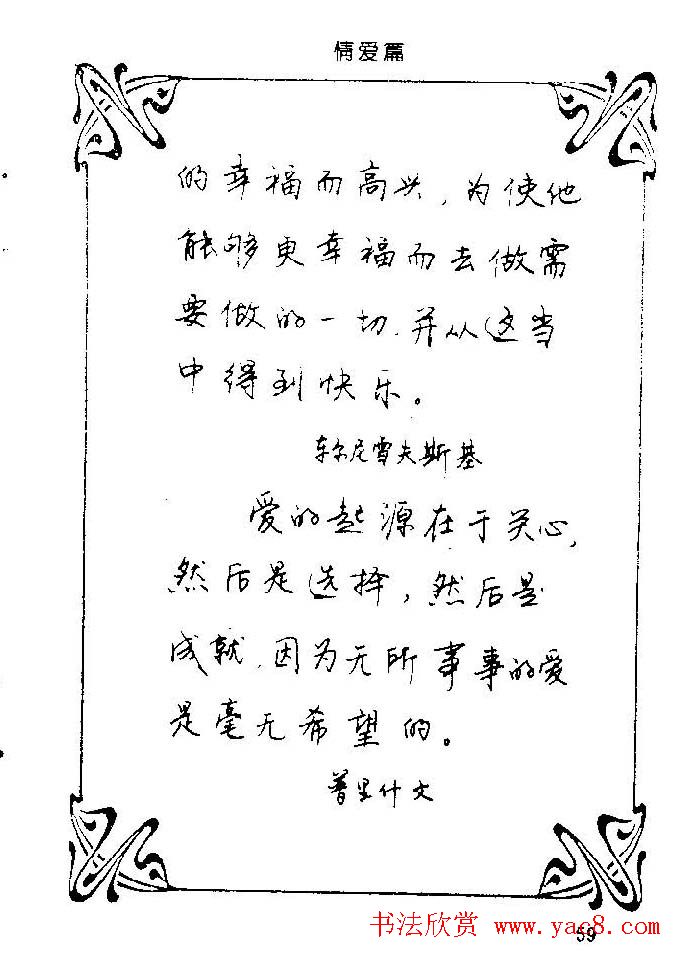 情爱篇
的幸福而高兴,为使他
能够更幸福而去做需
要做的一切,并从这当
中得到快乐。
车尔尼雪夫斯基
爱的起源在于关心,
然后是选择,然后是
成就,因为无所事事的爱
是毫无希望的。
普里什文
书法欣赏 www.yac8.com
59